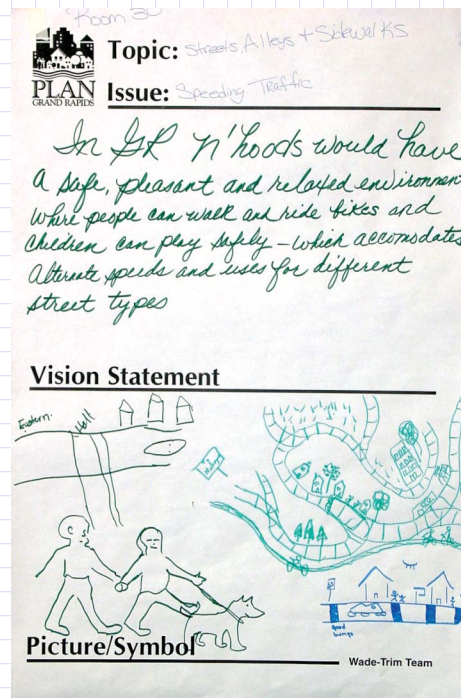 Room 30
Topic: Streets, Alleys + Sidewalks
PLAN
GRAND RAPIDS
Issue: Speeding Traffic
In GR n'hoods would have
a safe, pleasant and relaxed environmen
where people can walk and ride bikes and
children can play safely – which accomodates
alternate speeds and uses for different
street types
Vision Statement
Eastern
Hall
speed
bumps
Picture/Symbol
Wade-Trim Team